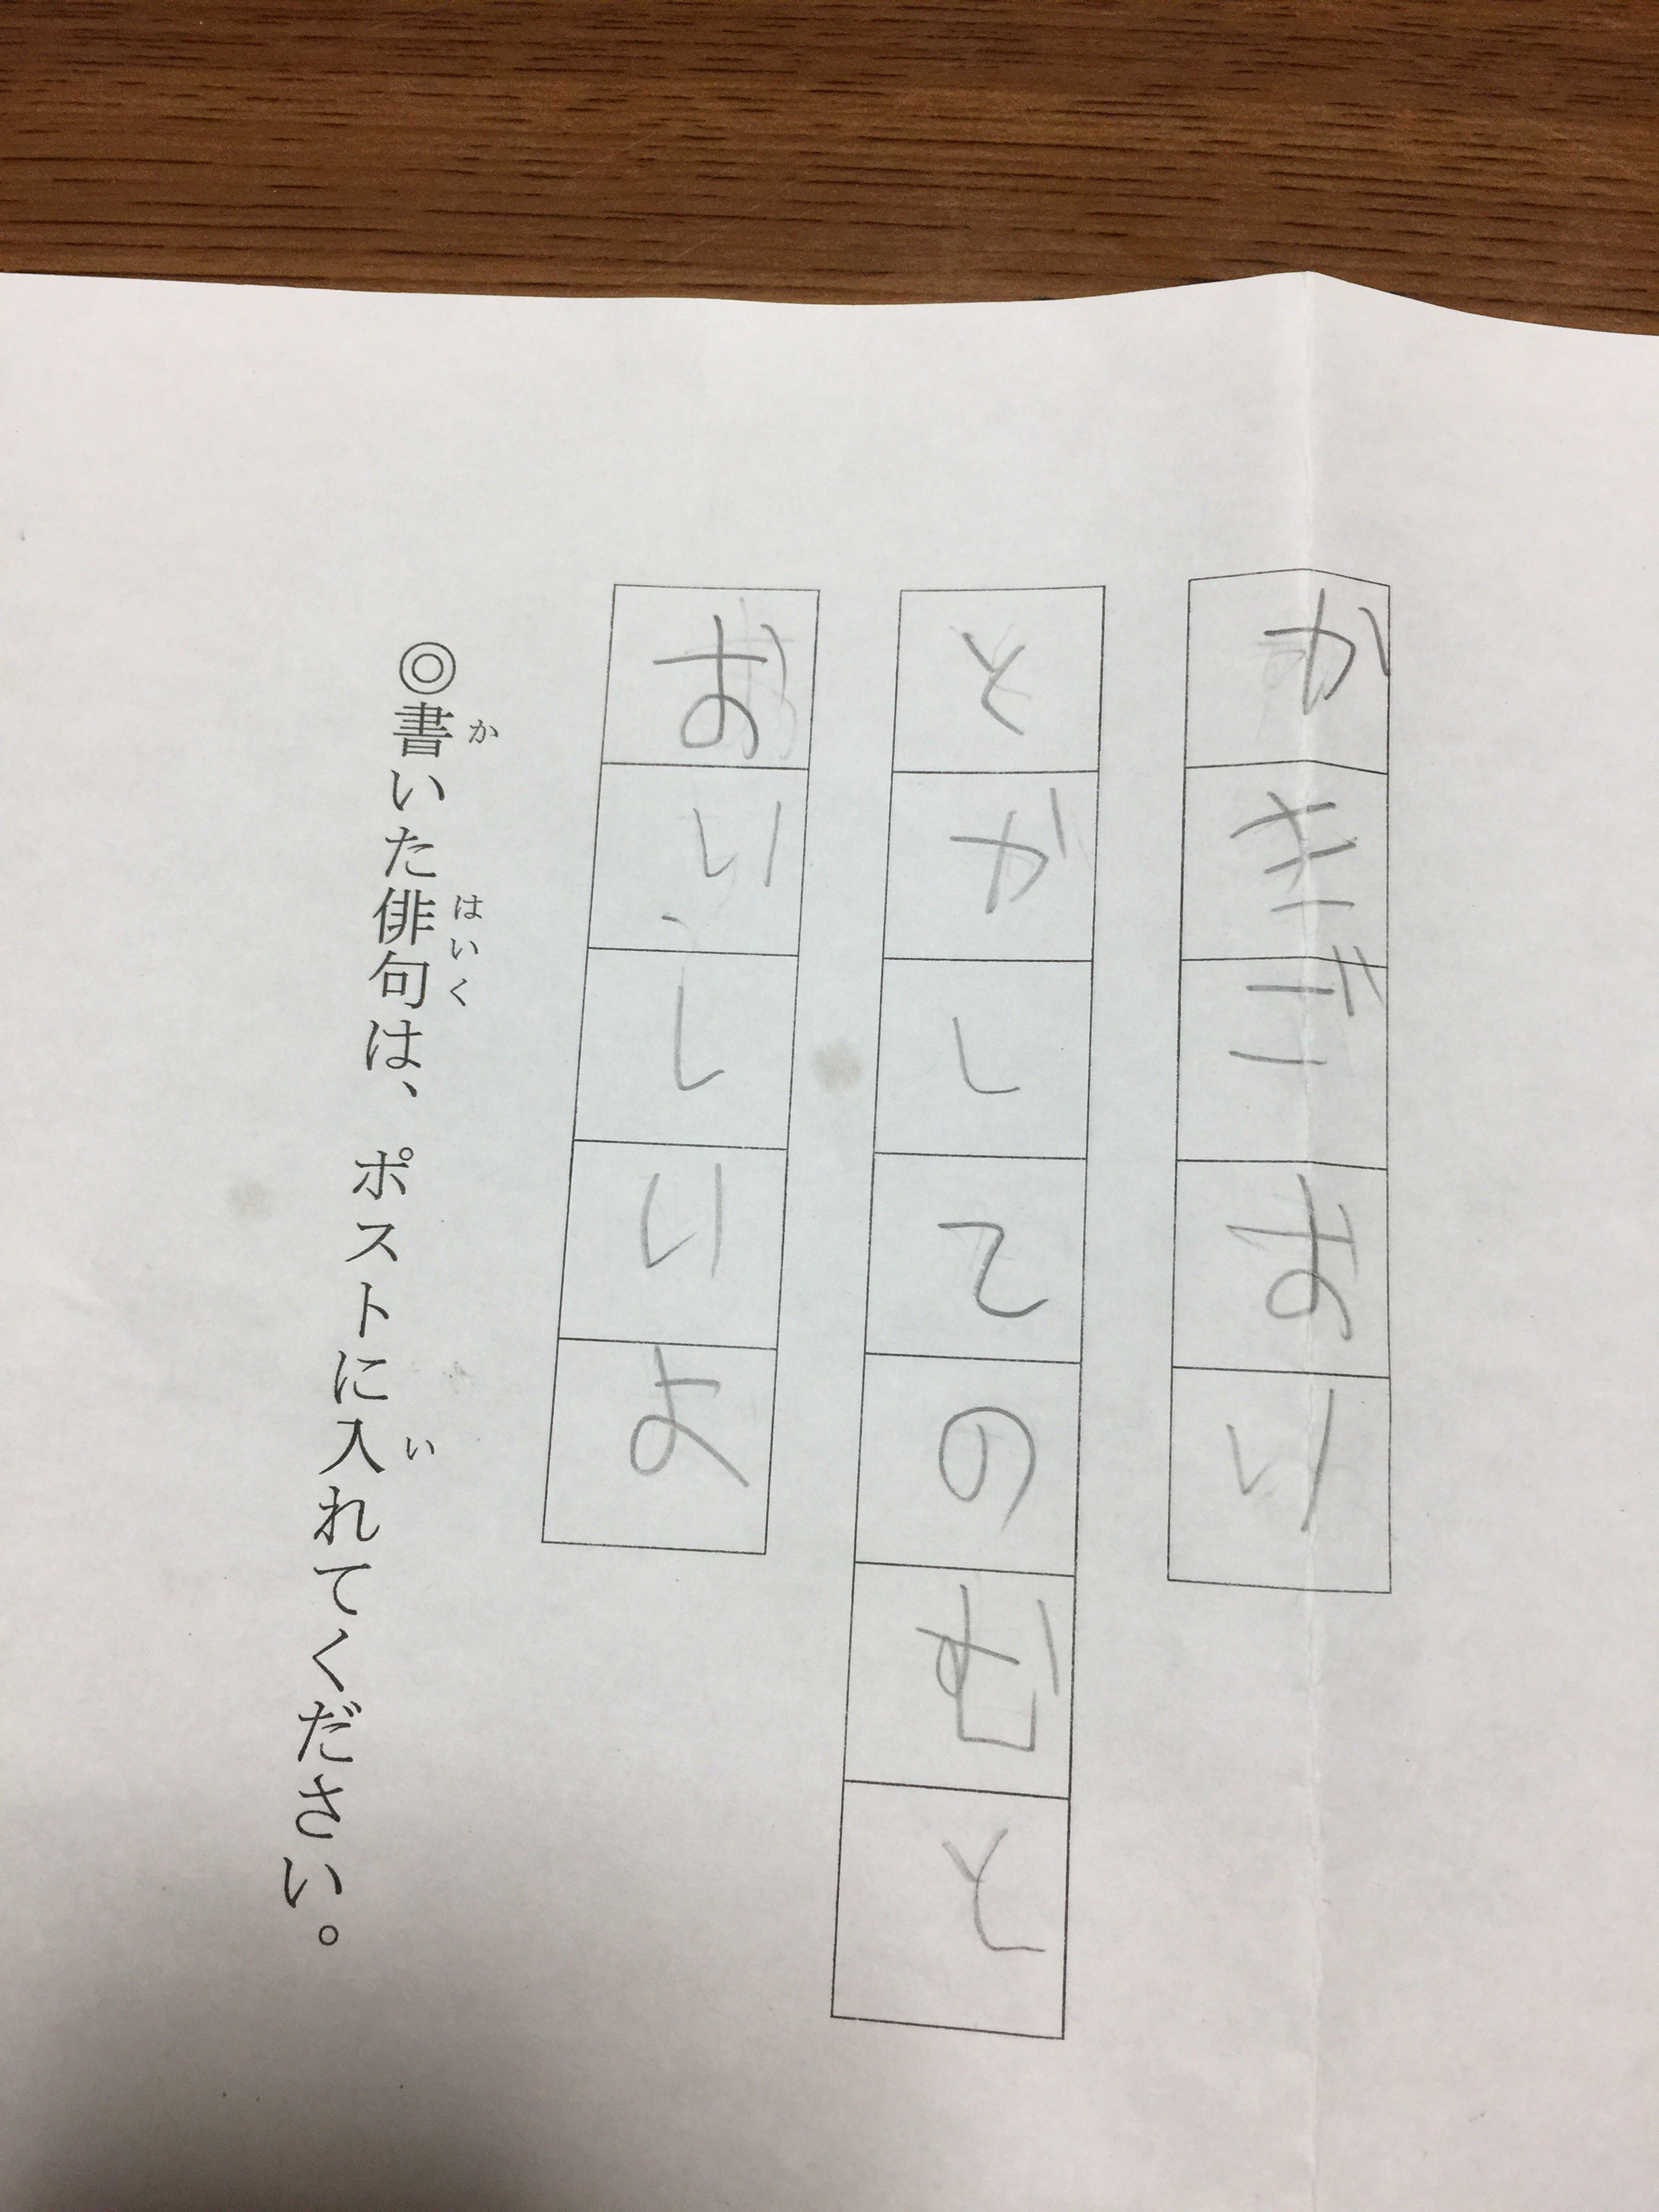 かきごおり
とかしてのむと
おいしいよ
◎書いた俳句は、ポストに入れてください。